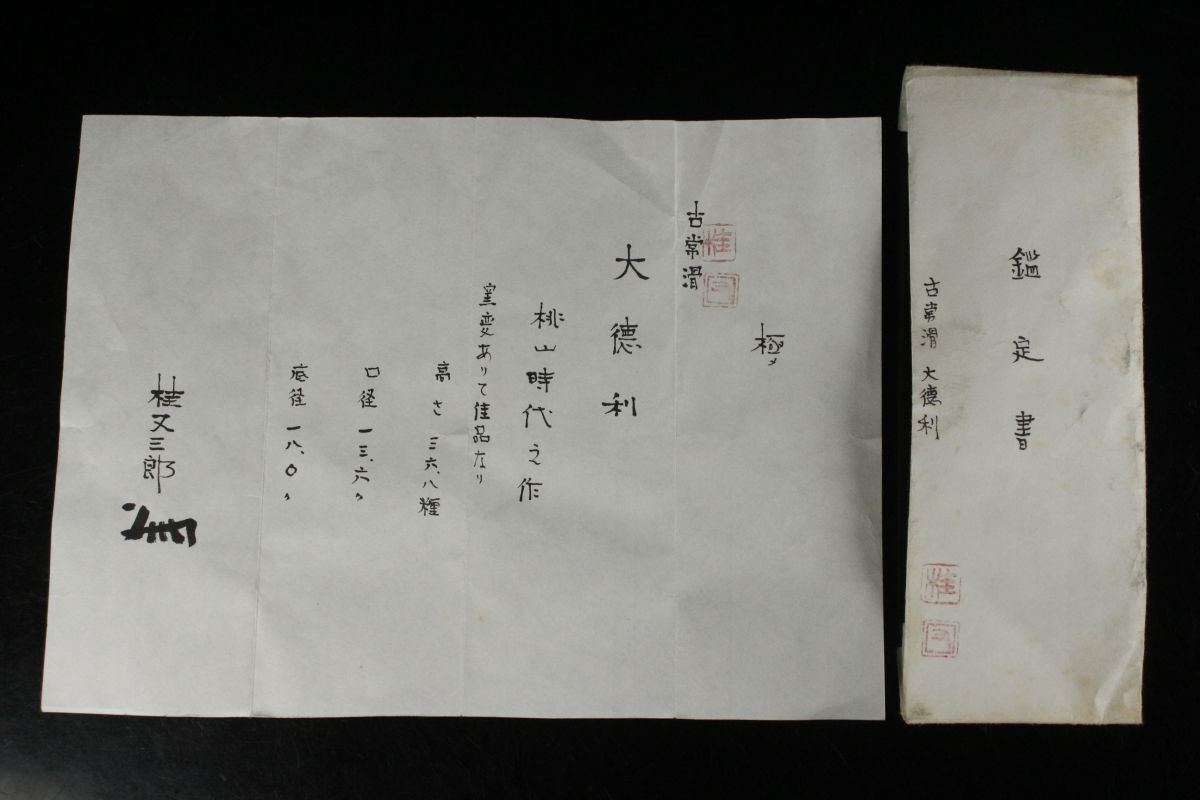 極メ
古常滑
大徳利
桃山時代之作
窯変ありて佳品なり
高さ 三六、八糎
口径 一三、六〃
底径 一八、〇〃
桂又三郎
鑑定書
古常滑 大徳利